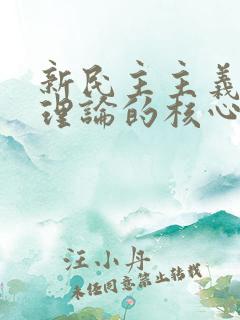 新民主主義
理論的核心
汪小丹
未經同意禁止轉載